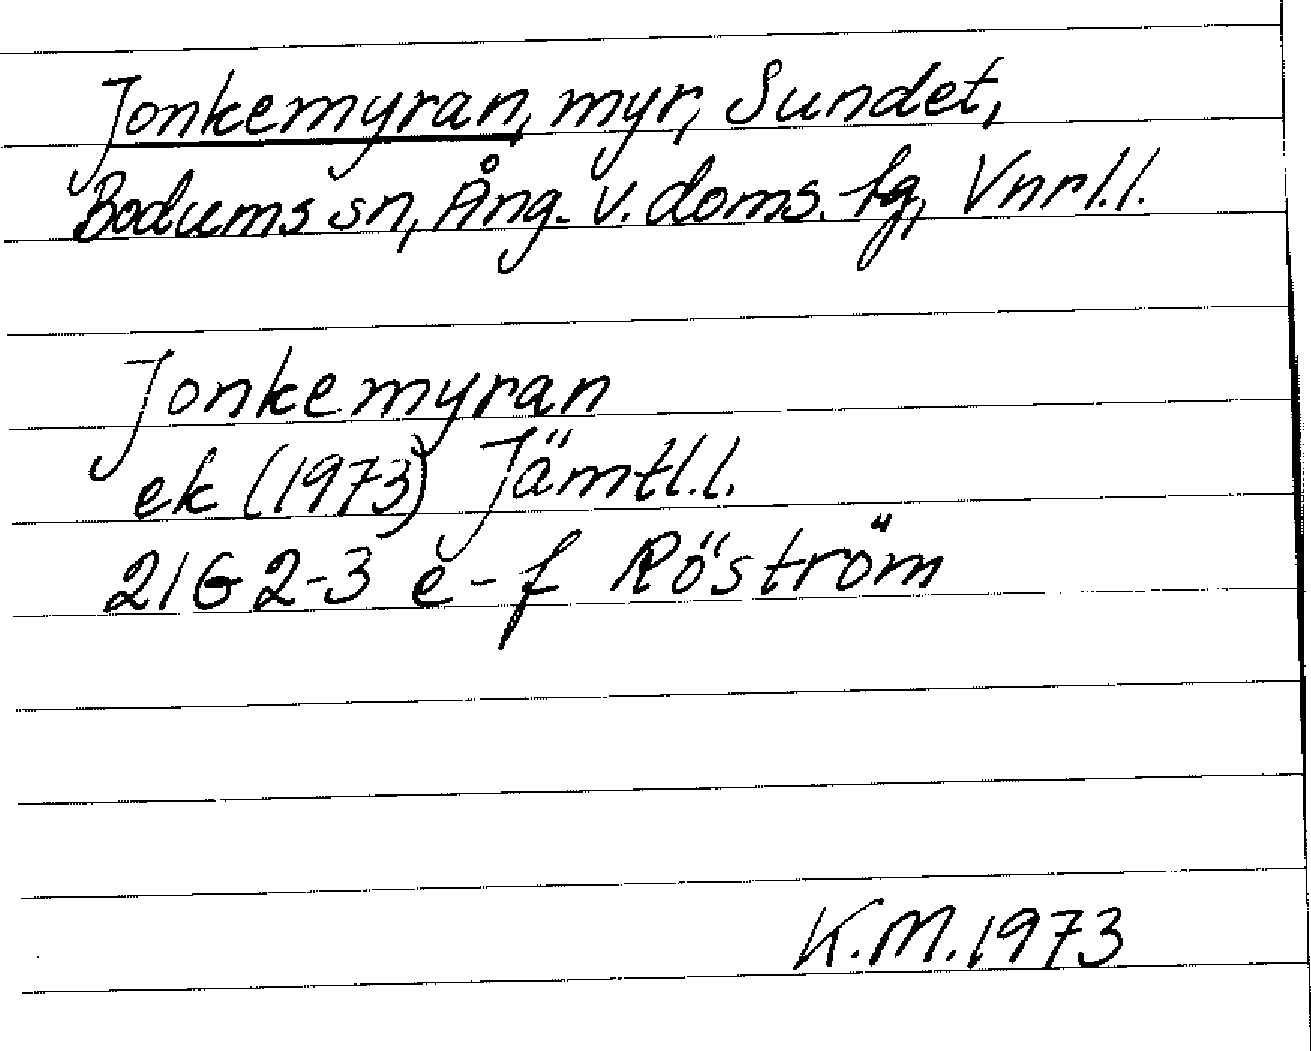 Jonkemyran, myr, Sundet,
Bodums sn, Ång. v. doms. tg, Vnrl.l.
Jonkemyran
ek (1973) Jämtl.l.
21G 2-3 e-f Röström
K.M. 1973